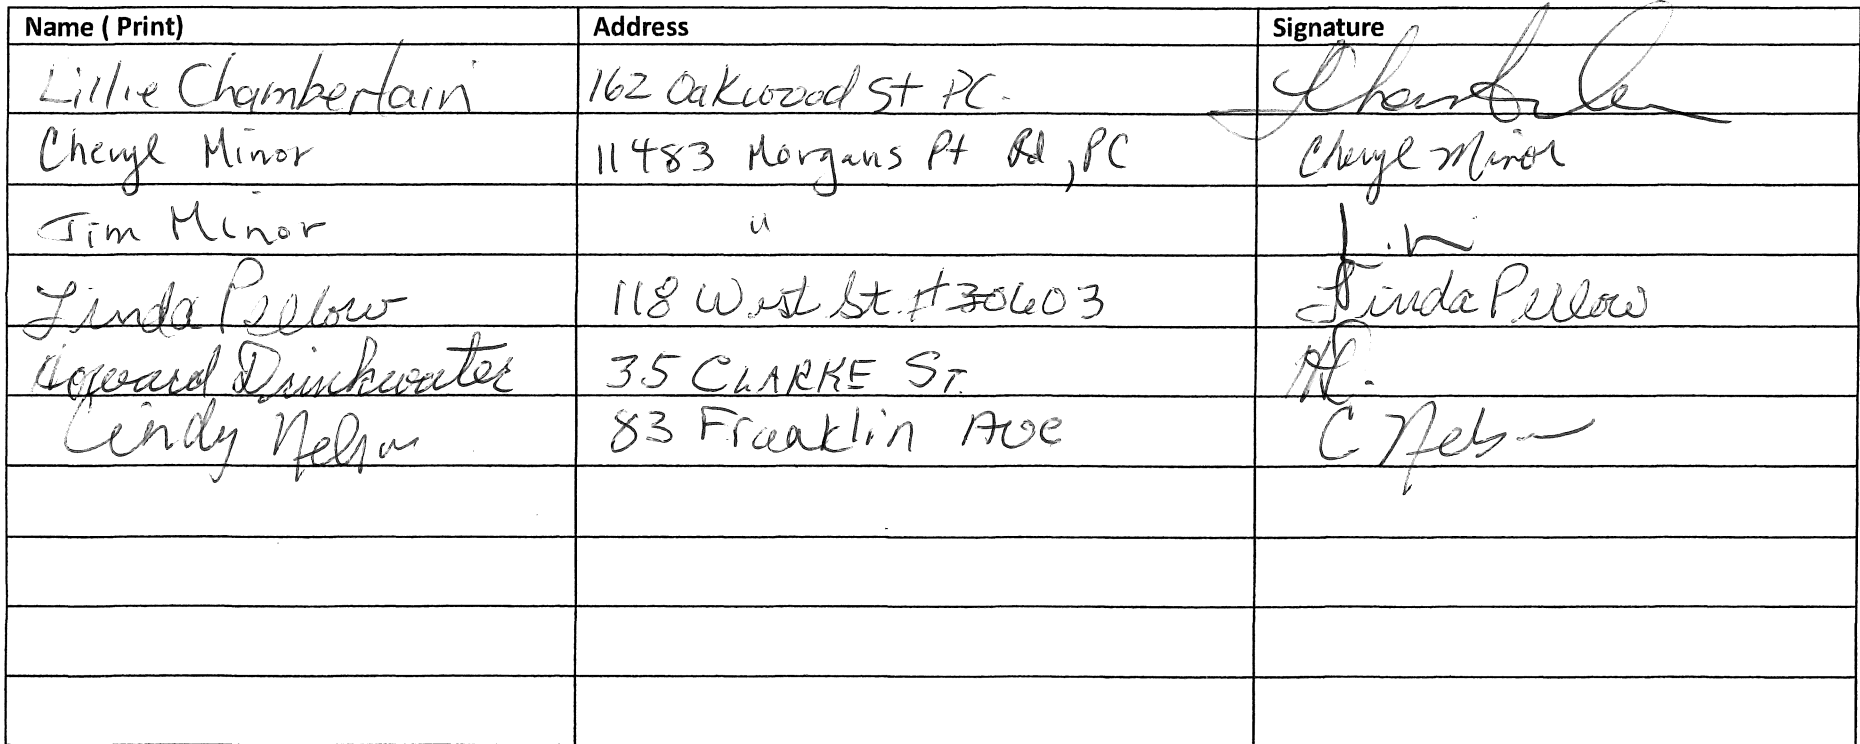 Name ( Print) Address Signature
Lillie Chamberlain 162 Oakwood St PC.
Cheryl Minor 11483 Morgans Pt Rd, PC Cheryl Minor
Jim Minor "
Linda Pellow 118 West St. # 603 Linda Pellow
Howard Drinkwater 35 CLARKE ST.
Cindy Nelson 83 Franklin Ave C Nelson